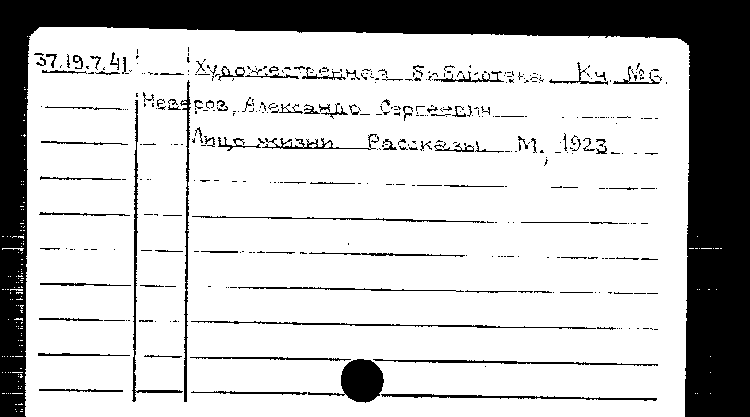 37.19.7.41 Художественная библиотека. Кн. №6.
Неверов, Александр Сергеевич
Лицо жизни. Рассказы. М., 1923.